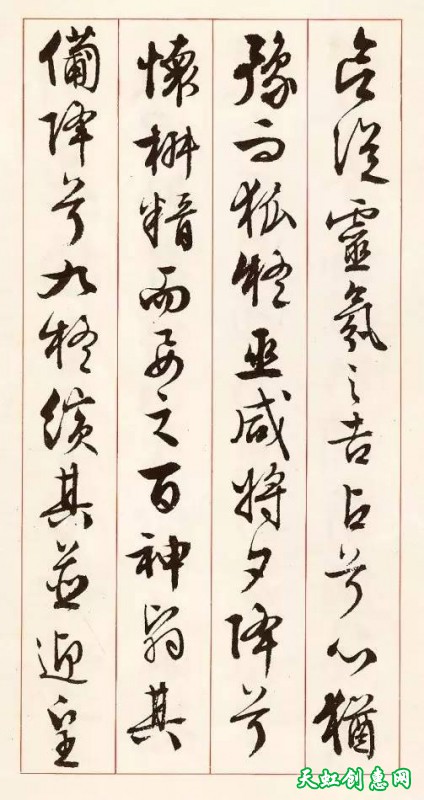 欲從靈氛之吉占兮心猶
豫而狐疑巫咸將夕降兮
懷椒糈而要之百神翳其
備降兮九疑繽其並迎皇
天虹创惠网